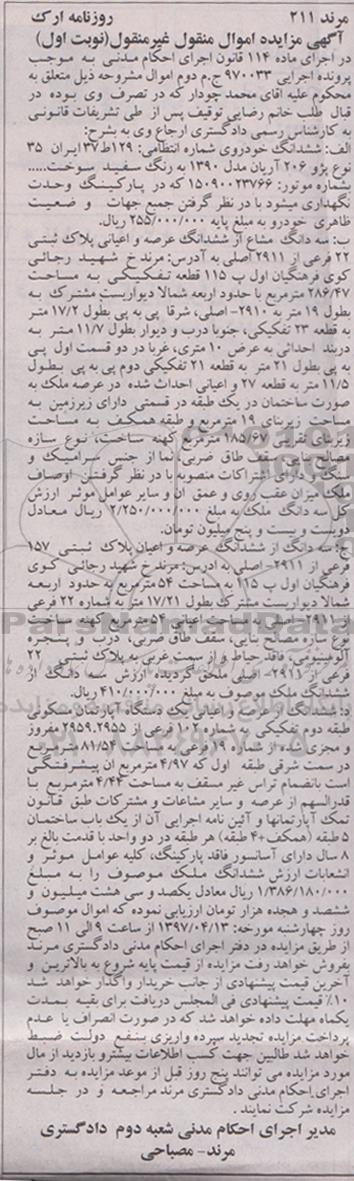 مرند ۲۱۱ روزنامه ارک
آگهی مزایده اموال منقول غیرمنقول(نوبت اول)
در اجرای ماده ۱۱۴ قانون اجرای احکام مدنی به موجب
پرونده اجرایی ۹۷۰۰۳۳ ج.م دوم اموال مشروحه ذیل متعلق به
محکوم علیه آقای محمد چودار که در تصرف وی بوده در
قبال طلب خانم رضایی توقیف پس از طی تشریفات قانونی
به کارشناس رسمی دادگستری ارجاع وی به شرح:
الف: ششدانگ خودروی شماره انتظامی: ۱۲۹ط۳۷ایران ۳۵
نوع پژو ۲۰۶ آریان مدل ۱۳۹۰ به رنگ سفید سوخت.....
بشماره موتور: ۱۵۰۹۰۰۲۳۷۶۶ که در پارکینگ وحدت
نگهداری میشود با در نظر گرفتن جمیع جهات و ضعیت
ظاهری خودرو به مبلغ پایه ۲۵۵/۰۰۰/۰۰۰ ریال.
ب: سه دانگ مشاع از ششدانگ عرصه و اعیانی پلاک ثبتی
۲۲ فرعی از ۲۹۱۱ اصلی به آدرس: مرند خ شهید رجائی
کوی فرهنگیان اول پ ۱۱۵ قطعه تفکیکی به مساحت
۲۸۶/۴۷ مترمربع با حدود اربعه شمالا دیواریست مشترک به
بطول ۱۹ متر به ۲۹۱۰- اصلی، شرقا پی به پی بطول ۱۷/۲ متر
به قطعه ۲۳ تفکیکی، جنوبا درب و دیوار بطول ۱۱/۷ متر به
دربند احداثی به عرض ۱۰ متری، غربا در دو قسمت اول پی
به پی بطول ۲۱ متر به قطعه ۲۱ تفکیکی دوم پی به پی بطول
۱۱/۵ متر به قطعه ۲۷ و اعیانی احداث شده در عرصه ملک به
صورت ساختمان در یک طبقه در قسمتی دارای زیرزمین به
مساحت زیربنای ۱۹ مترمربع و طبقه همکف به مساحت
زیربنای تقریبی ۱۸۵/۶۷ مترمربع کهنه ساخت، نوع سازه
مصالح بنایی سقف طاق ضربی، نما از جنس سرامیک و
سنگ و دارای اشتراکات منصوبه با در نظر گرفتن اوصاف
ملک میزان عقب روی و عمق ان و سایر عوامل موثر ارزش
کل سه دانگ ملک به مبلغ ۲/۲۵۰/۰۰۰/۰۰۰ ریال معادل
دویست و بیست و پنج میلیون تومان.
ج: سه دانگ از ششدانگ عرصه و اعیان پلاک ثبتی ۱۵۷
فرعی از ۲۹۱۱- اصلی به ادرس: مرند خ شهید رجائی کوی
فرهنگیان اول پ ۱۱۵ به مساحت ۵۴ مترمربع به حدود اربعه
شمالا دیواریست مشترک بطول ۱۷/۲۱ متر به شماره ۲۲ فرعی
از ۲۹۱۱- اصلی به مساحت اعیانی ۵۴ مترمربع کهنه ساخت
نوع سازه مصالح بنایی، سقف طاق ضربی، درب و پنجره
آلومینیومی، فاقد حیاط و از سمت غربی به پلاک ثبتی ۲۲
فرعی از ۲۹۱۱- اصلی ملحق گردیده ارزش سه دانگ از
ششدانگ ملک موصوف به مبلغ ۴۱۰/۰۰۰/۰۰۰ ریال.
د: ششدانگ از عرصه و اعیانی یک دستگاه آپارتمان مسکونی
طبقه دوم تفکیکی به شماره ۲۱ فرعی از ۲۹۵۹.۲۹۵۵ مفروز
و مجزی شده از شماره ۱۹ فرعی به مساحت ۸۱/۵۴ مترمربع
در سمت شرقی طبقه اول که ۴/۹۷ مترمربع ان پیشرفتگی
است بانضمام تراس غیر مسقف به مساحت ۴/۴۴ مترمربع با
قدرالسهم از عرصه و سایر مشاعات و مشترکات طبق قانون
تمک آپارتمانها و آئین نامه اجرایی آن از یک باب ساختمان
۵ طبقه (همکف+۴ طبقه) هر طبقه در دو واحد با قدمت بالغ بر
۸ سال دارای آسانسور فاقد پارکینگ، کلیه عوامل موثر و
انشعابات ارزش ششدانگ ملک موصوف را به مبلغ
۱/۳۸۶/۱۸۰/۰۰۰ ریال معادل یکصد و سی هشت میلیون و
ششصد و هجده هزار تومان ارزیابی نموده که اموال موصوف
روز چهارشنبه مورخه: ۱۳۹۷/۰۴/۱۳ از ساعت ۹ الی ۱۱ صبح
از طریق مزایده در دفتر اجرای احکام مدنی دادگستری مرند
بفروش خواهد رفت مزایده از قیمت پایه شروع به بالاترین و
آخرین قیمت پیشنهادی از جانب خریدار واگذار خواهد شد
۱۰٪ قیمت پیشنهادی فی المجلس دریافت برای بقیه بمدت
یکماه مهلت داده خواهد شد که در صورت انصراف یا عدم
پرداخت مزایده تجدید سپرده واریزی بنفع دولت ضبط
خواهد شد طالبین جهت کسب اطلاعات بیشترو بازدید از مال
مورد مزایده می توانند پنج روز قبل از موعد مزایده به دفتر
اجرای احکام مدنی دادگستری مرند مراجعه و در جلسه
مزایده شرکت نمایند .
مدیر اجرای احکام مدنی شعبه دوم دادگستری
مرند- مصباحی